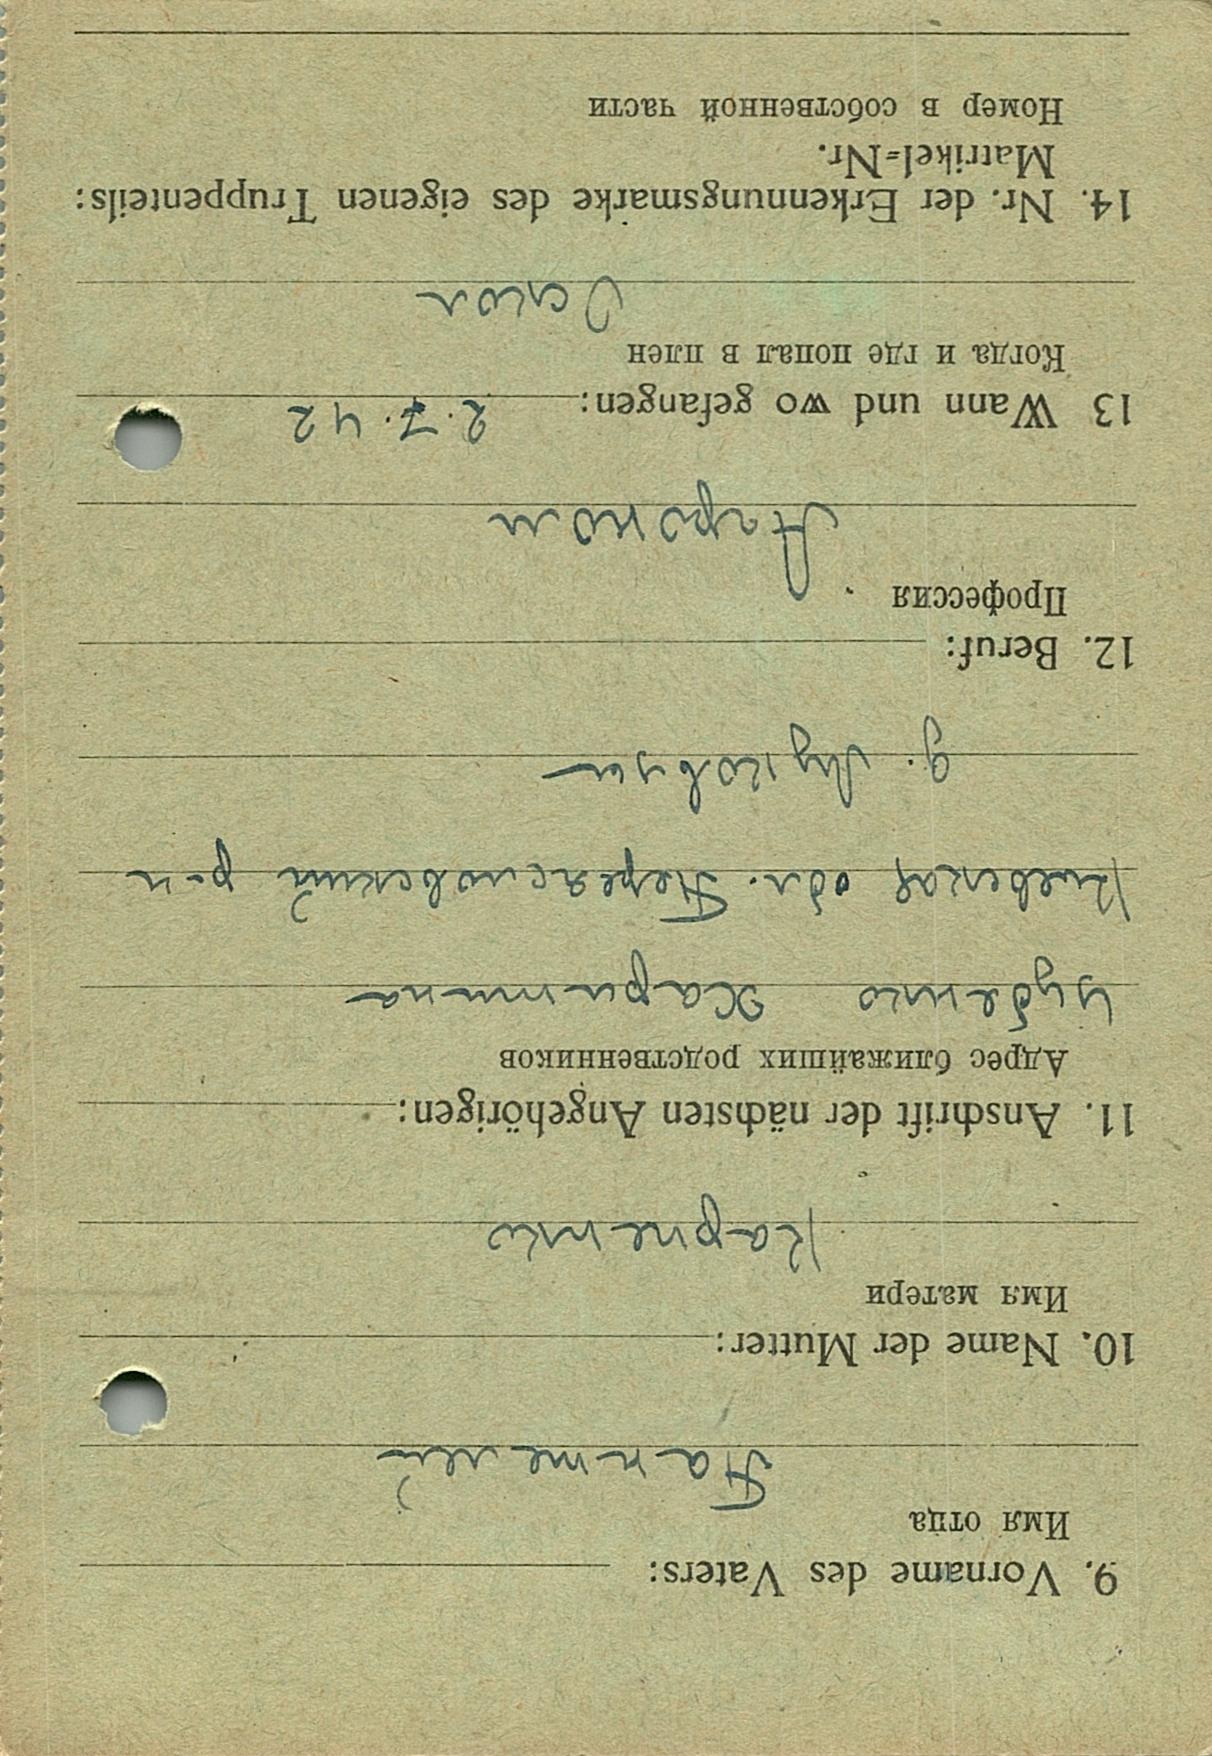 9. Vorname des Vaters:
Имя отца
Пантелей
10. Name der Mutter:
Имя матери
Карпенко
11. Anschrift der nächsten Angehörigen:
Адрес ближайших родственников
Цубенко Харитина
Киевская обл. Переясловский р-н
д.
12. Beruf:
Профессия
Агроном
13 Wann und wo gefangen: 2.7.42
Когда и где попал в плен
Оскол
14. Nr. der Erkennungsmarke des eigenen Truppenteils:
Matrikel=Nr.
Номер в собственной части